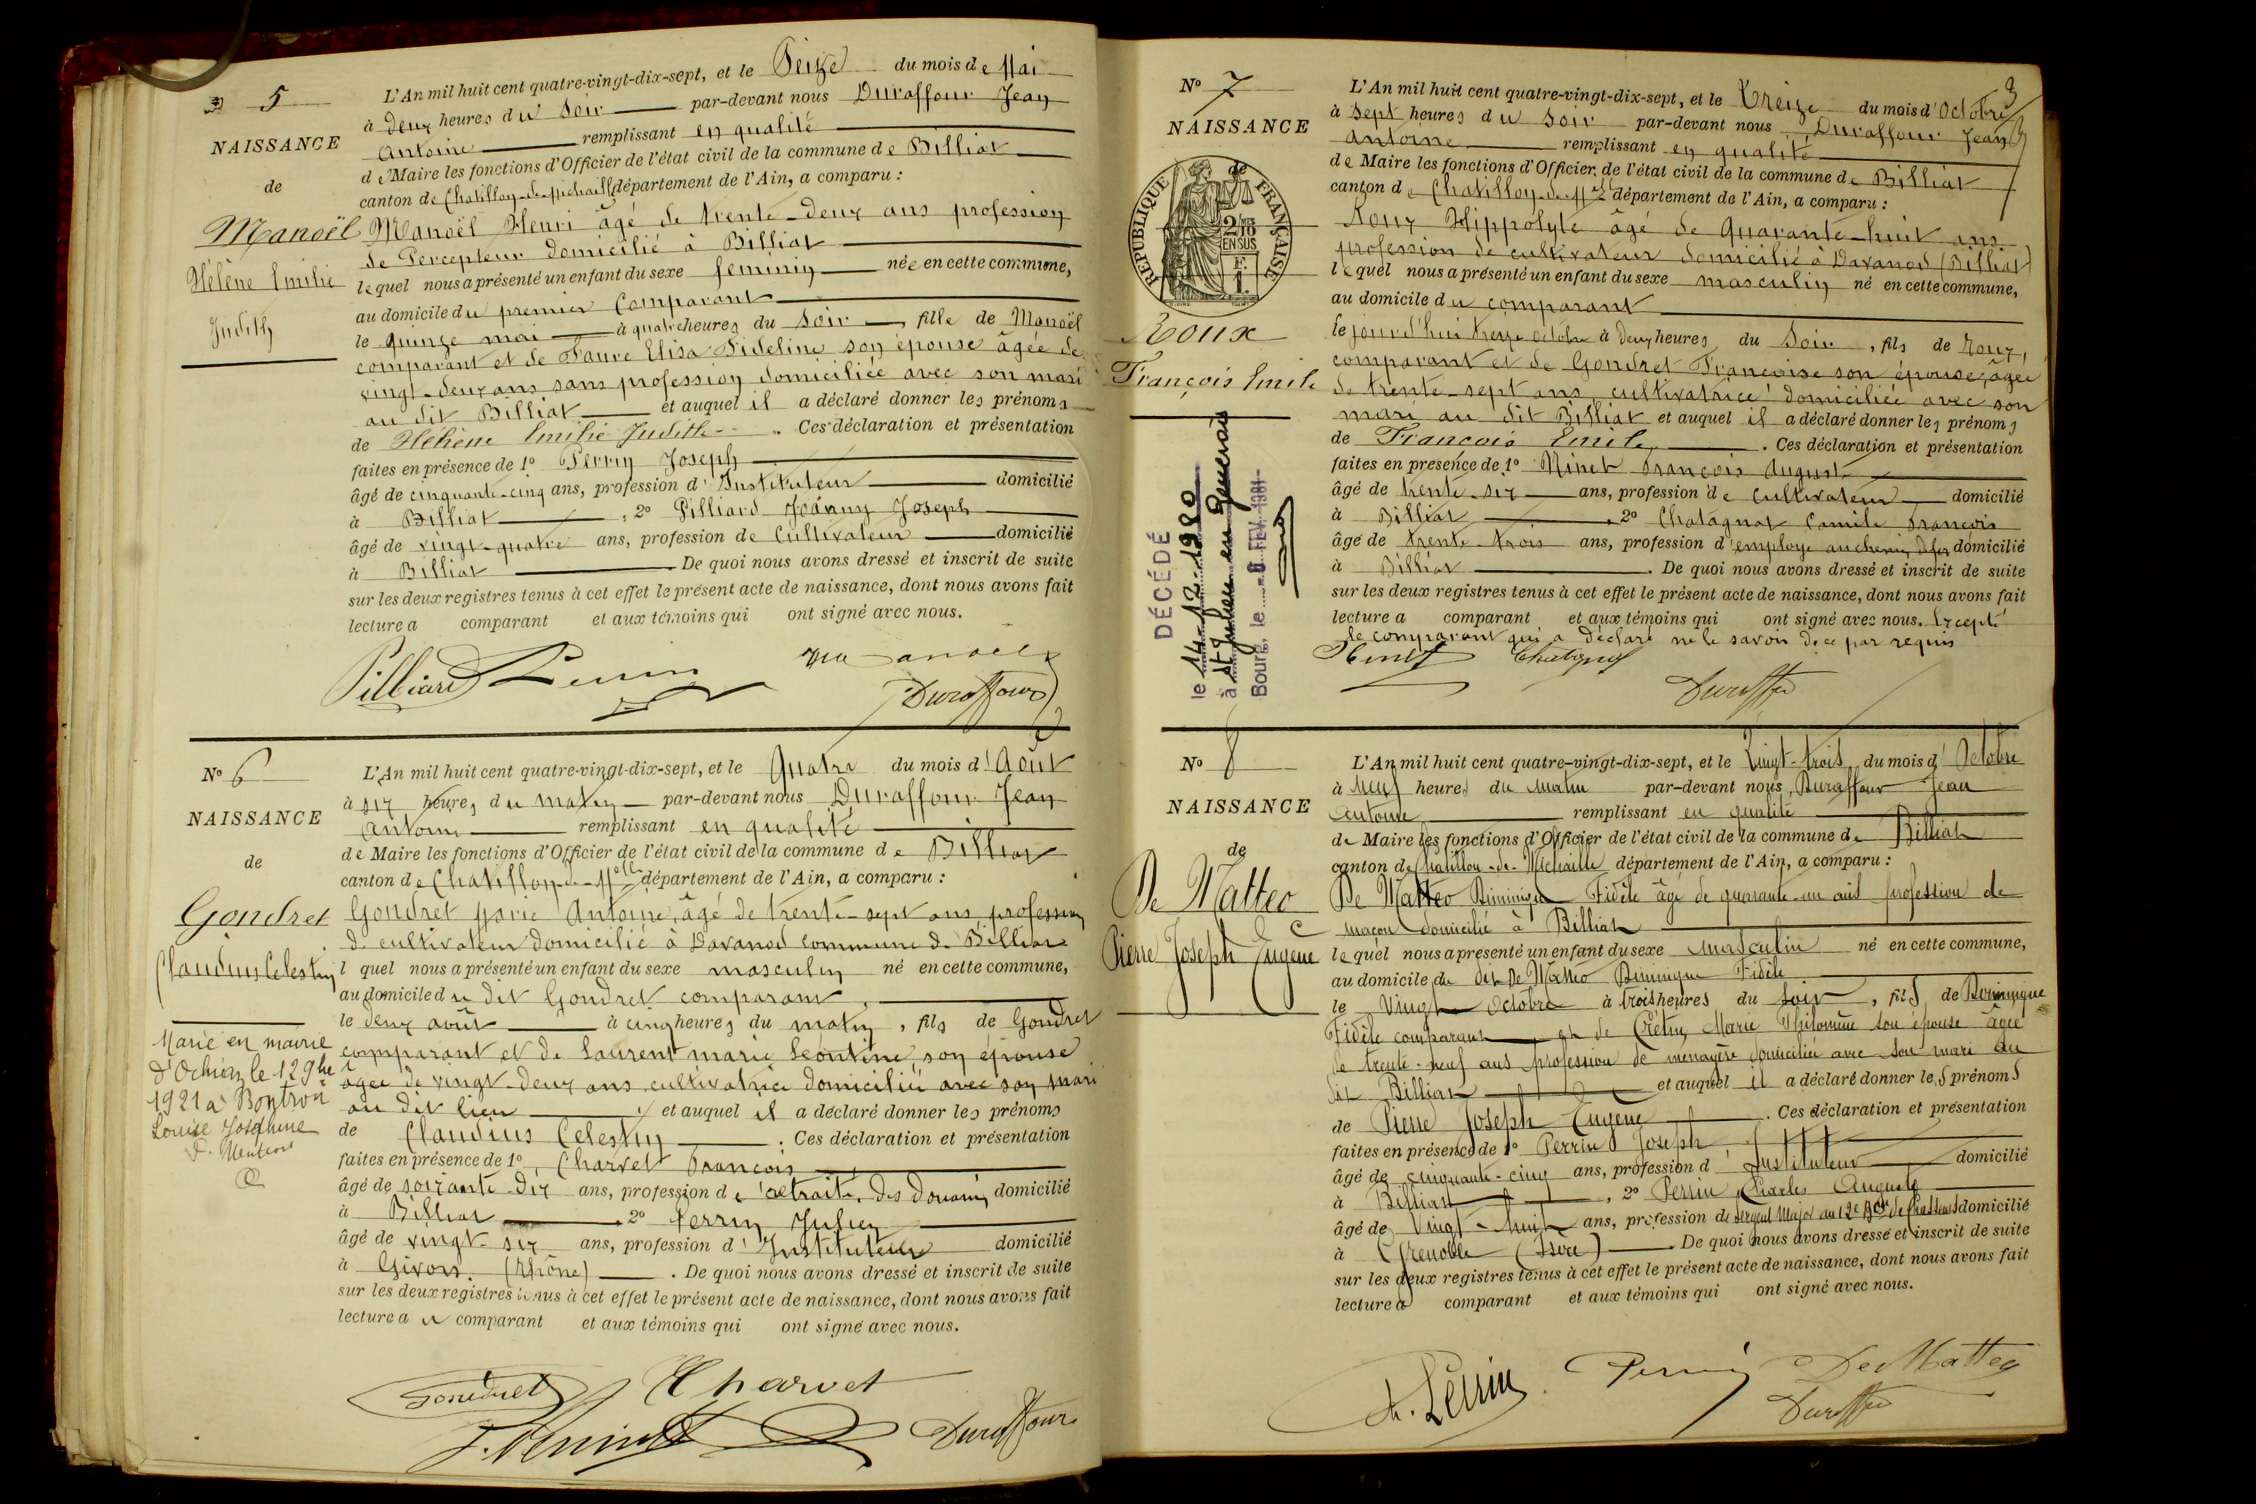 5
NAISSANCE
de
Manoël
Hélène Emilie
Judith
L'An mil huit cent quatre-vingt-dix-sept, et le Seize du mois de Mai
à deux heures du soir par-devant nous Duraffour Jean
Antoine remplissant en qualité
de Maire les fonctions d'Officier de l'état civil de la commune de Billiat
canton de Chatillon-de-Michaille département de l'Ain, a comparu :
Manoël Henri âgé de trente-deux ans profession
de Percepteur domicilié à Billiat
lequel nous a présenté un enfant du sexe feminin née en cette commune,
au domicile du premier comparant
le quinze mai à quatre heures du soir, fille de Manoël
comparant et de Faure Elisa Fideline son épouse âgée de
vingt-deux ans sans profession domiciliée avec son mari
au dit Billiat et auquel il a déclaré donner les prénoms
de Hélène Emilie Judith. Ces déclaration et présentation
faites en présence de 1º Perrin Joseph
âgé de cinquante-cinq ans, profession d'Instituteur domicilié
à Billiat, 2º Pilliard Joanny Joseph
âgé de vingt-quatre ans, profession de Cultivateur domicilié
à Billiat De quoi nous avons dressé et inscrit de suite
sur les deux registres tenus à cet effet le présent acte de naissance, dont nous avons fait
lecture a comparant et aux témoins qui ont signé avec nous.
Pilliard Perrin Manoël
Duraffour
Nº 6
NAISSANCE
de
Gondret
Claudius Celestin
Marié en mairie
d'Ochiaz le 12 9bre
1921 à
Louise Joséphine
L'An mil huit cent quatre-vingt-dix-sept, et le Quatre du mois d'Août
à six heures du matin par-devant nous Duraffour Jean
Antoine remplissant en qualité
de Maire les fonctions d'Officier de l'état civil de la commune de Billiat
canton de Chatillon-de-Mlle département de l'Ain, a comparu :
Gondret Marie Antoine, âgé de trente-sept ans, profession
de cultivateur domicilié à Davanod commune de Billiat
lquel nous a présenté un enfant du sexe masculin né en cette commune,
au domicile du dit Gondret comparant,
le deux août à cinq heures du matin, fils de Gondret
comparant et de Laurent marie Léontine son épouse
âgée de vingt-deux ans, cultivatrice domiciliée avec son mari
au dit lieu et auquel il a déclaré donner les prénoms
de Claudius Celestin. Ces déclaration et présentation
faites en présence de 1º Charvet François
âgé de soixante-dix ans, profession de retraité des Douanes domicilié
à Billiat, 2º Perrin Julien
âgé de vingt-six ans, profession d'Instituteur domicilié
à Givors (Rhône). De quoi nous avons dressé et inscrit de suite
sur les deux registres tenus à cet effet le présent acte de naissance, dont nous avons fait
lecture au comparant et aux témoins qui ont signé avec nous.
Gondret Charvet
J. Perrin Duraffour
3
Nº 7
NAISSANCE
de
RÉPUBLIQUE FRANÇAISE
2/10 EN SUS
F. 1.
Roux
François Emile
DÉCÉDÉ
le 14-12-1980
à St Julien en Genevois
Bourg, le FEV. 1981
L'An mil huit cent quatre-vingt-dix-sept, et le treize du mois d'Octobre
à sept heures du soir par-devant nous, Duraffour Jean
Antoine remplissant en qualité
de Maire les fonctions d'Officier de l'état civil de la commune de Billiat
canton de Chatillon-de-Mlle département de l'Ain, a comparu :
Roux Hippolyte âgé de Quarante-huit ans
profession de cultivateur domicilié à Davanod (Billiat)
lequel nous a présenté un enfant du sexe masculin né en cette commune,
au domicile du comparant
le jourd'hui treize octobre à deux heures du soir, fils de Roux,
comparant et de Gondret Françoise son épouse, âgée
de trente-sept ans, cultivatrice domiciliée avec son
mari au dit Billiat et auquel il a déclaré donner les prénoms
de François Emile. Ces déclaration et présentation
faites en présence de 1º Ninet François Auguste
âgé de trente-six ans, profession de cultivateur domicilié
à Billiat, 2º Chatagnat Camille François
âgé de trente-trois ans, profession d'employé au chemin de fer domicilié
à Billiat. De quoi nous avons dressé et inscrit de suite
sur les deux registres tenus à cet effet le présent acte de naissance, dont nous avons fait
lecture a comparant et aux témoins qui ont signé avec nous. Excepté
le comparant qui a déclaré ne le savoir de ce par requis
Ninet Chatagnat
Duraffour
Nº 8
NAISSANCE
de
De Matteo
Pierre Joseph Eugène
L'An mil huit cent quatre-vingt-dix-sept, et le Vingt-trois du mois d'Octobre
à Neuf heures du matin par-devant nous, Duraffour Jean
Antoine remplissant en qualité
de Maire les fonctions d'Officier de l'état civil de la commune de Billiat
canton de Chatillon-de-Michaille département de l'Ain, a comparu :
De Matteo Dominique Fidèle âgé de quarante-un ans profession de
maçon domicilié à Billiat
lequel nous a présenté un enfant du sexe masculin né en cette commune,
au domicile du dit De Matteo Dominique Fidèle
le Vingt Octobre à trois heures du soir, fils de Dominique
Fidèle comparant et de Crétin Marie Philomène son épouse âgée
de trente-neuf ans profession de menagère domiciliée avec son mari au
dit Billiat et auquel il a déclaré donner les prénoms
de Pierre Joseph Eugène. Ces déclaration et présentation
faites en présence de 1º Perrin Joseph
âgé de cinquante-cinq ans, profession d'Instituteur domicilié
à Billiat, 2º Perrin Charles Auguste
âgé de Vingt-huit ans, profession de Sergent Major au 12e Bon de Chasseurs domicilié
à Grenoble (Isère). De quoi nous avons dressé et inscrit de suite
sur les deux registres tenus à cet effet le présent acte de naissance, dont nous avons fait
lecture a comparant et aux témoins qui ont signé avec nous.
Ch. Perrin Perrin De Matteo
Duraffour